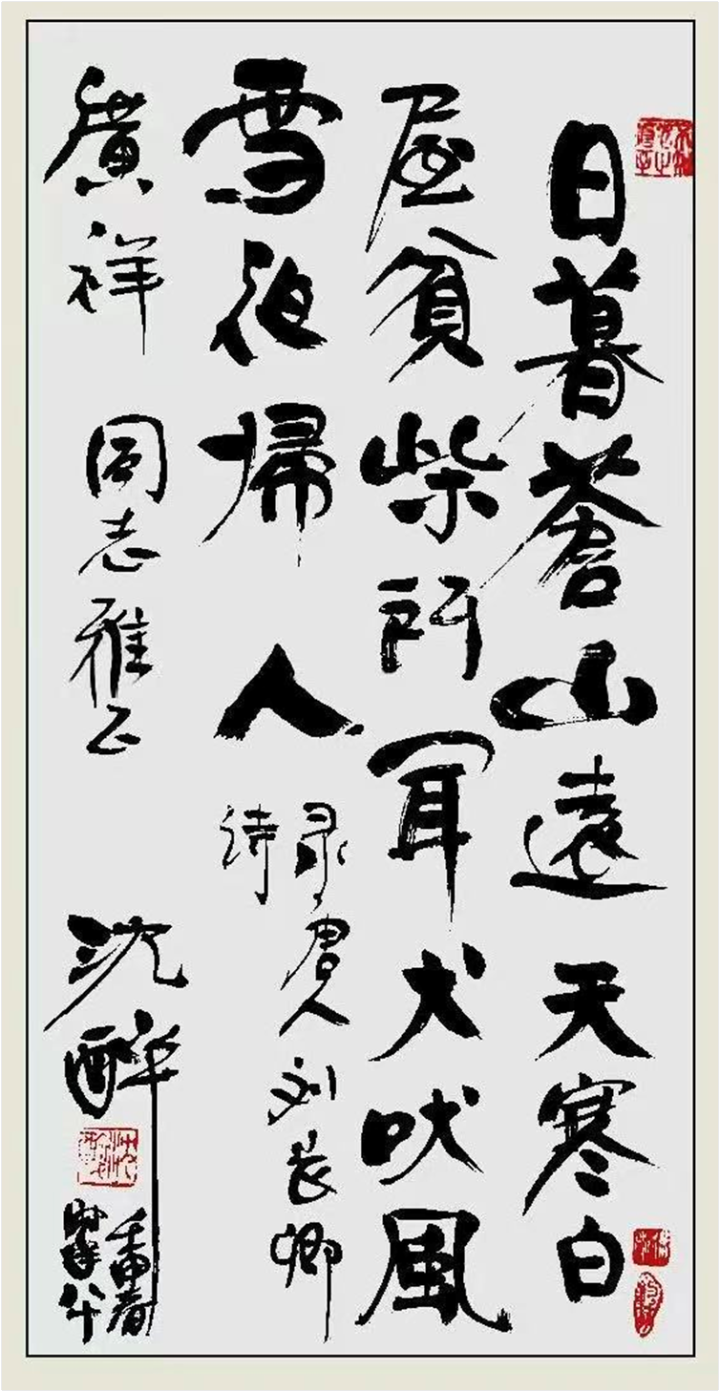 日暮蒼山遠天寒白
屋貧柴門聞犬吠風
雪夜歸人
录唐人刘長卿
诗
廣祥同志雅正
沈醉